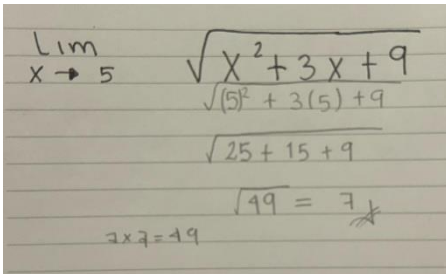 Lim x → 5 √(x² + 3x + 9)
√((5)² + 3(5) + 9)
√(25 + 15 + 9)
√49 = 7
7 x 7 = 49